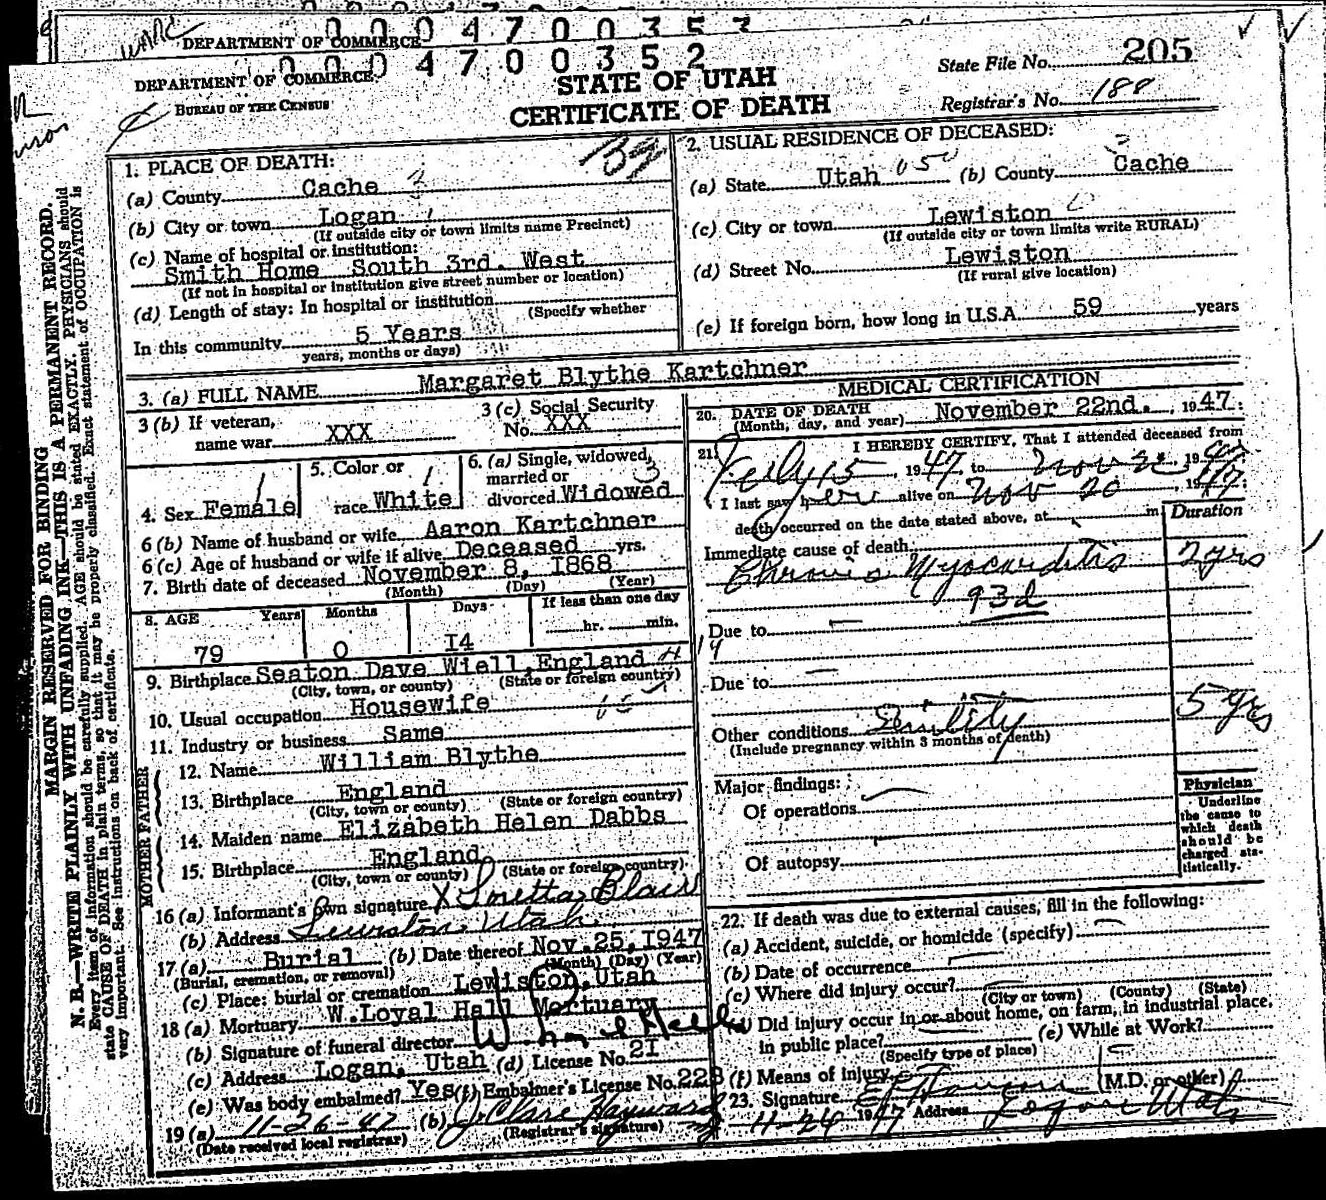 0004700353
DEPARTMENT OF COMMERCE
0004700352
DEPARTMENT OF COMMERCE
BUREAU OF THE CENSUS
STATE OF UTAH
CERTIFICATE OF DEATH
State File No. 205
Registrar's No. 188
MARGIN RESERVED FOR BINDING
N. B.—WRITE PLAINLY WITH UNFADING INK—THIS IS A PERMANENT RECORD.
Every item of information should be carefully supplied. AGE should be stated EXACTLY. PHYSICIANS should
state CAUSE OF DEATH in plain terms, so that it may be properly classified. Exact statement of OCCUPATION is
very important. See instructions on back of certificate.
1. PLACE OF DEATH:
(a) County Cache 3
(b) City or town Logan 1
(If outside city or town limits name Precinct)
(c) Name of hospital or institution:
Smith Home South 3rd. West
(If not in hospital or institution give street number or location)
(d) Length of stay: In hospital or institution
(Specify whether
In this community 5 Years
years, months or days)
2. USUAL RESIDENCE OF DECEASED:
(a) State Utah (b) County Cache
(c) City or town Lewiston
(If outside city or town limits write RURAL)
(d) Street No. Lewiston
(If rural give location)
(e) If foreign born, how long in U.S.A. 59 years
3. (a) FULL NAME Margaret Blythe Kartchner
3 (b) If veteran,
name war XXX
3 (c) Social Security
No. XXX
4. Sex Female
5. Color or
race White
6. (a) Single, widowed,
married or
divorced Widowed
6 (b) Name of husband or wife Aaron Kartchner
6 (c) Age of husband or wife if alive Deceased yrs.
7. Birth date of deceased November 8, I868
(Month) (Day) (Year)
8. AGE Years Months Days If less than one day
79 0 I4 hr. min.
9. Birthplace Seaton Dave Wiell, England
(City, town, or county) (State or foreign country)
10. Usual occupation Housewife
11. Industry or business Same
FATHER
12. Name William Blythe
13. Birthplace England
(City, town or county) (State or foreign country)
MOTHER
14. Maiden name Elizabeth Helen Dabbs
15. Birthplace England
(City, town or county) (State or foreign country)
16 (a) Informant's own signature X Loretta Blair
(b) Address Lewiston, Utah
17 (a) Burial (b) Date thereof Nov. 25, I947
(Burial, cremation, or removal) (Month) (Day) (Year)
(c) Place: burial or cremation Lewiston, Utah
18 (a) Mortuary W. Loyal Hall Mortuary
(b) Signature of funeral director
(c) Address Logan, Utah (d) License No. 2I
(e) Was body embalmed? Yes (f) Embalmer's License No. 228
19 (a) 11-26-47 (b) J. Clare Hayward
(Date received local registrar) (Registrar's signature)
MEDICAL CERTIFICATION
20. DATE OF DEATH
(Month, day, and year) November 22nd., 1947.
21. I HEREBY CERTIFY, That I attended deceased from
July 15 1947 to Nov 19
I last saw her alive on Nov 20, 1947.
death occurred on the date stated above, at m
Duration
Immediate cause of death
Chronic Myocarditis 2 yrs
93d
Due to
Due to
Other conditions Senility 5 yrs
(Include pregnancy within 3 months of death)
Major findings:
Of operations
Of autopsy
Physician
Underline
the cause to
which death
should be
charged sta-
tistically.
22. If death was due to external causes, fill in the following:
(a) Accident, suicide, or homicide (specify)
(b) Date of occurrence
(c) Where did injury occur?
(City or town) (County) (State)
(d) Did injury occur in or about home, on farm, in industrial place,
in public place? (e) While at Work?
(Specify type of place)
(f) Means of injury
23. Signature (M.D. or other)
11-24 1947 Address Logan Utah